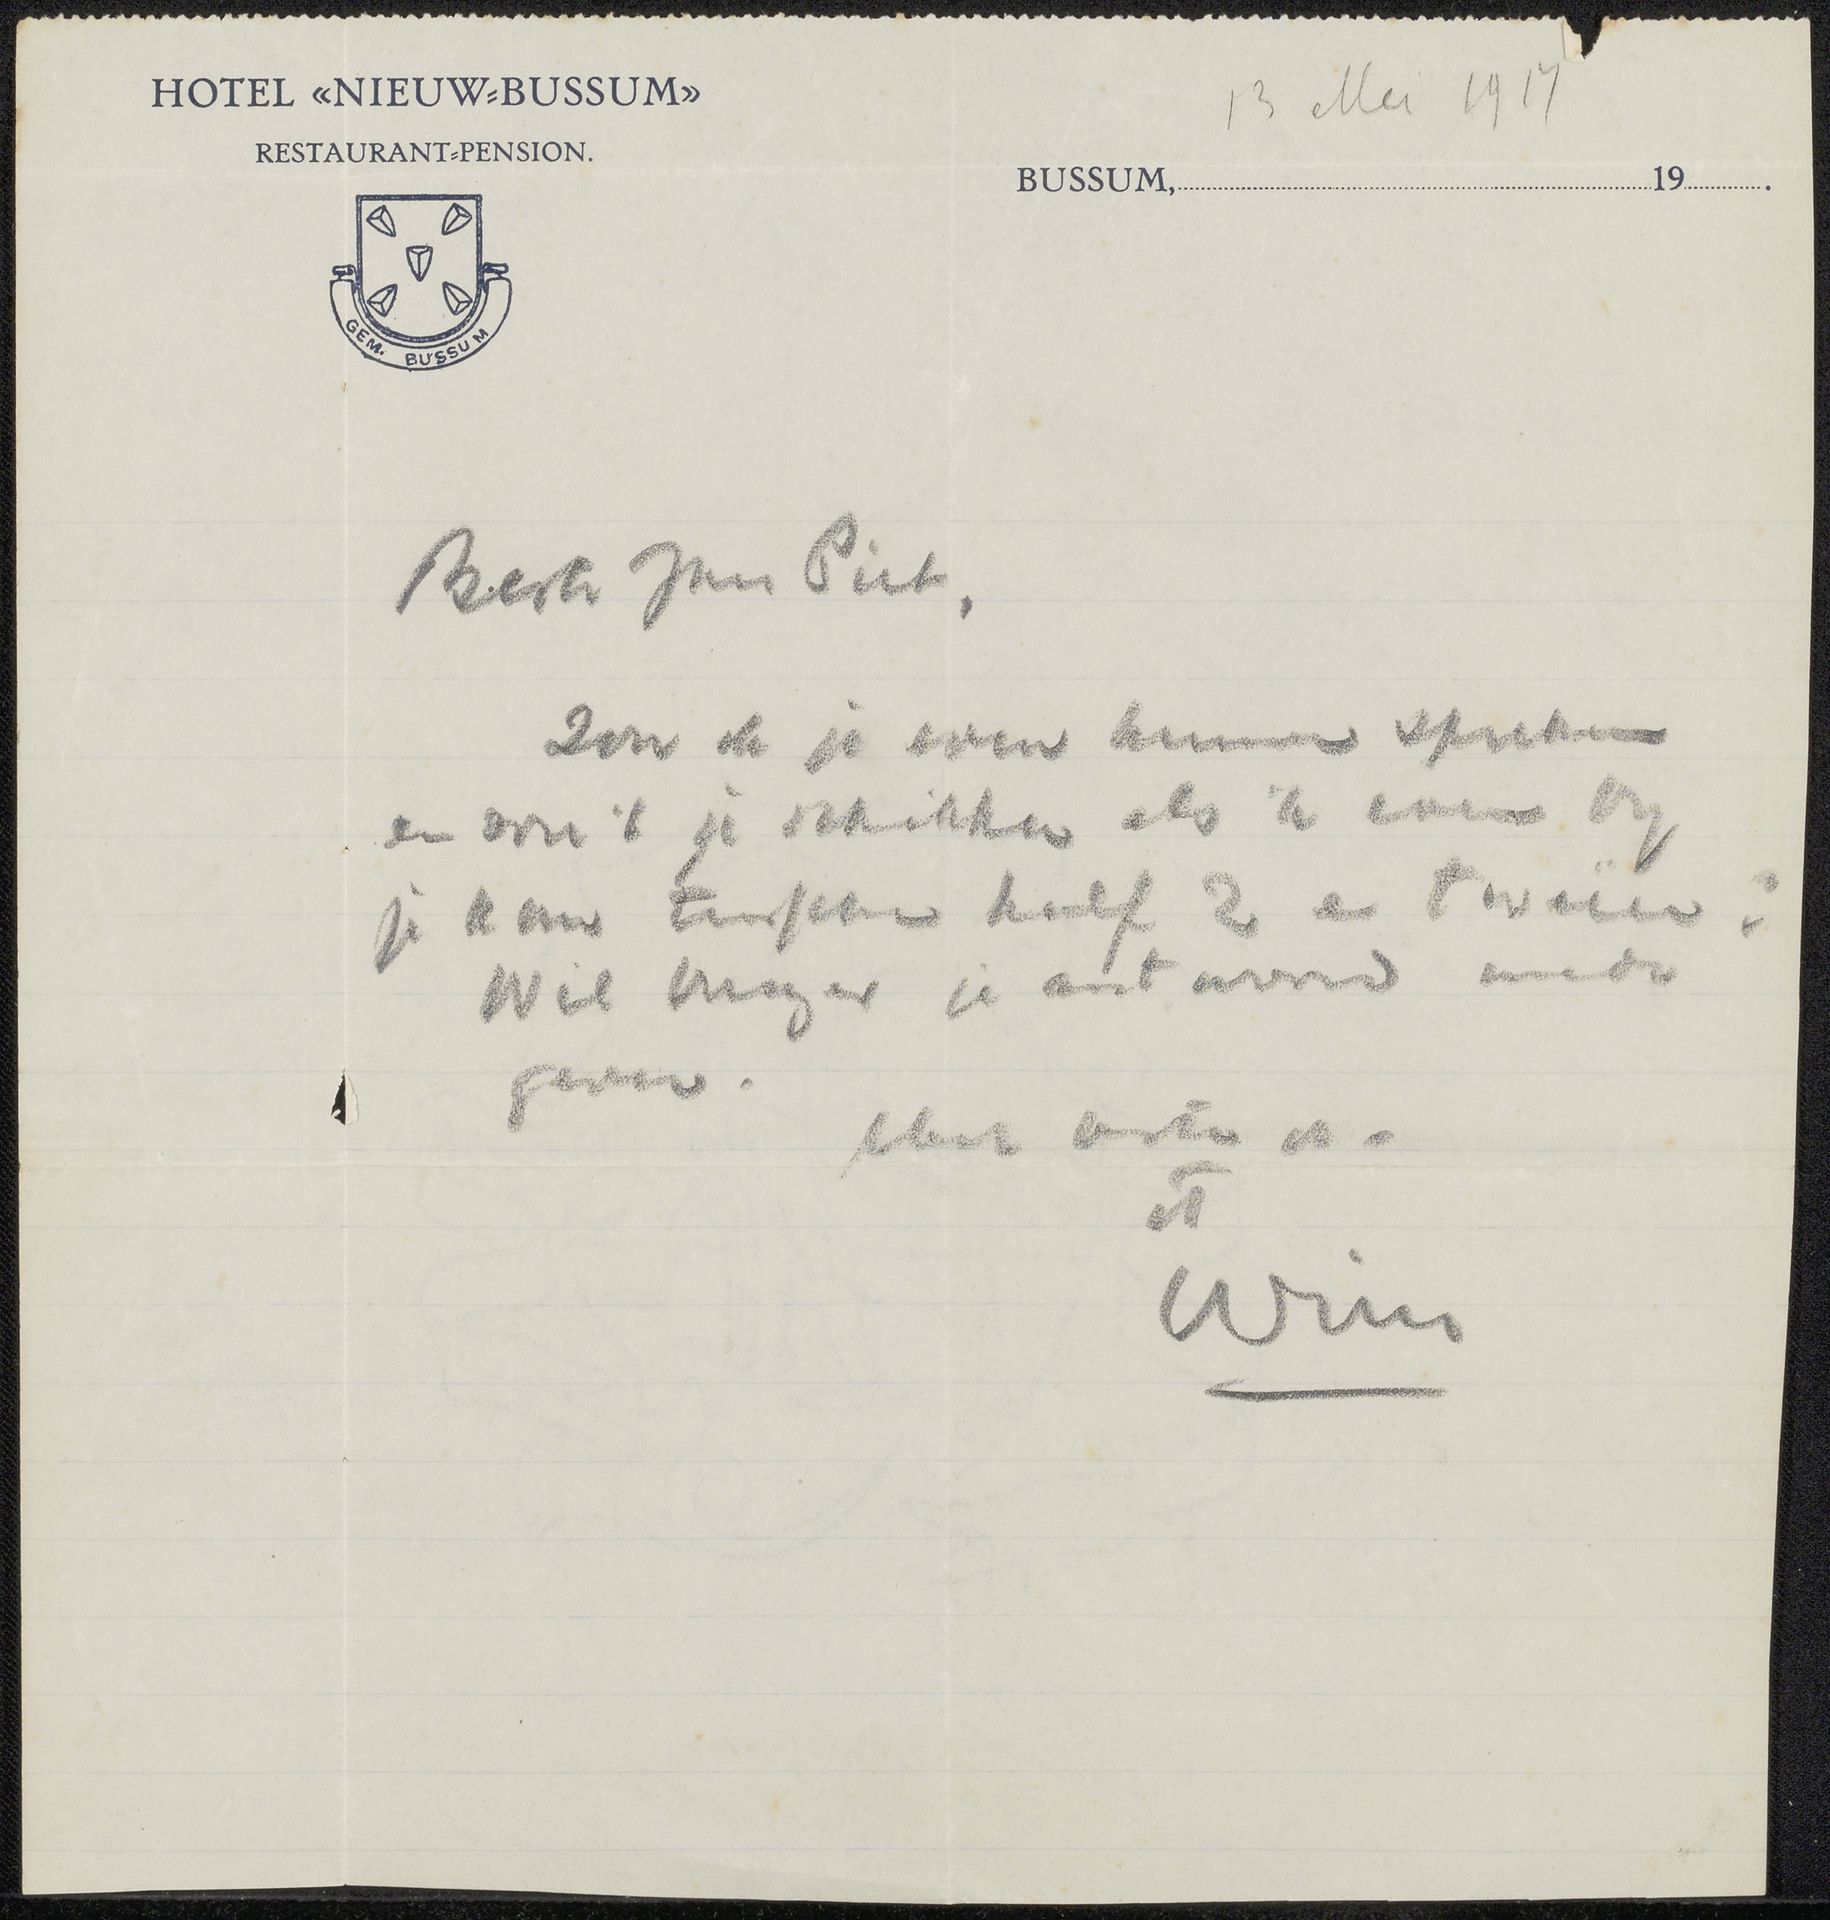 HOTEL «NIEUW=BUSSUM»
RESTAURANT=PENSION.
13 Mei 1917
BUSSUM, 19 .
GEM. BUSSUM
Beste Jan Piet,
Zou ik je even kunnen spreken
en zou 't je schikken als 'k even bij
je kom tusschen half 2 en tweeën?
Wil brenger je antwoord mede
geven.
Wim